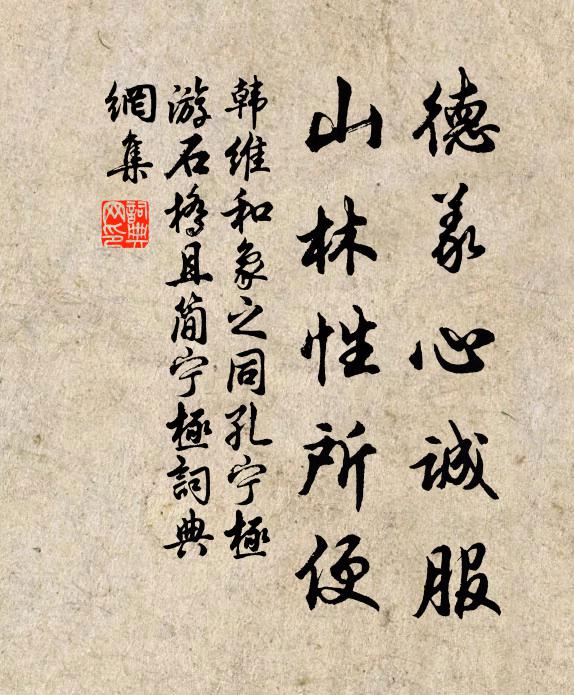 德义心诚服
山林性所便
韩维和象之同孔宁極
游石橋且简宁極詞典
網集
詞典
网印